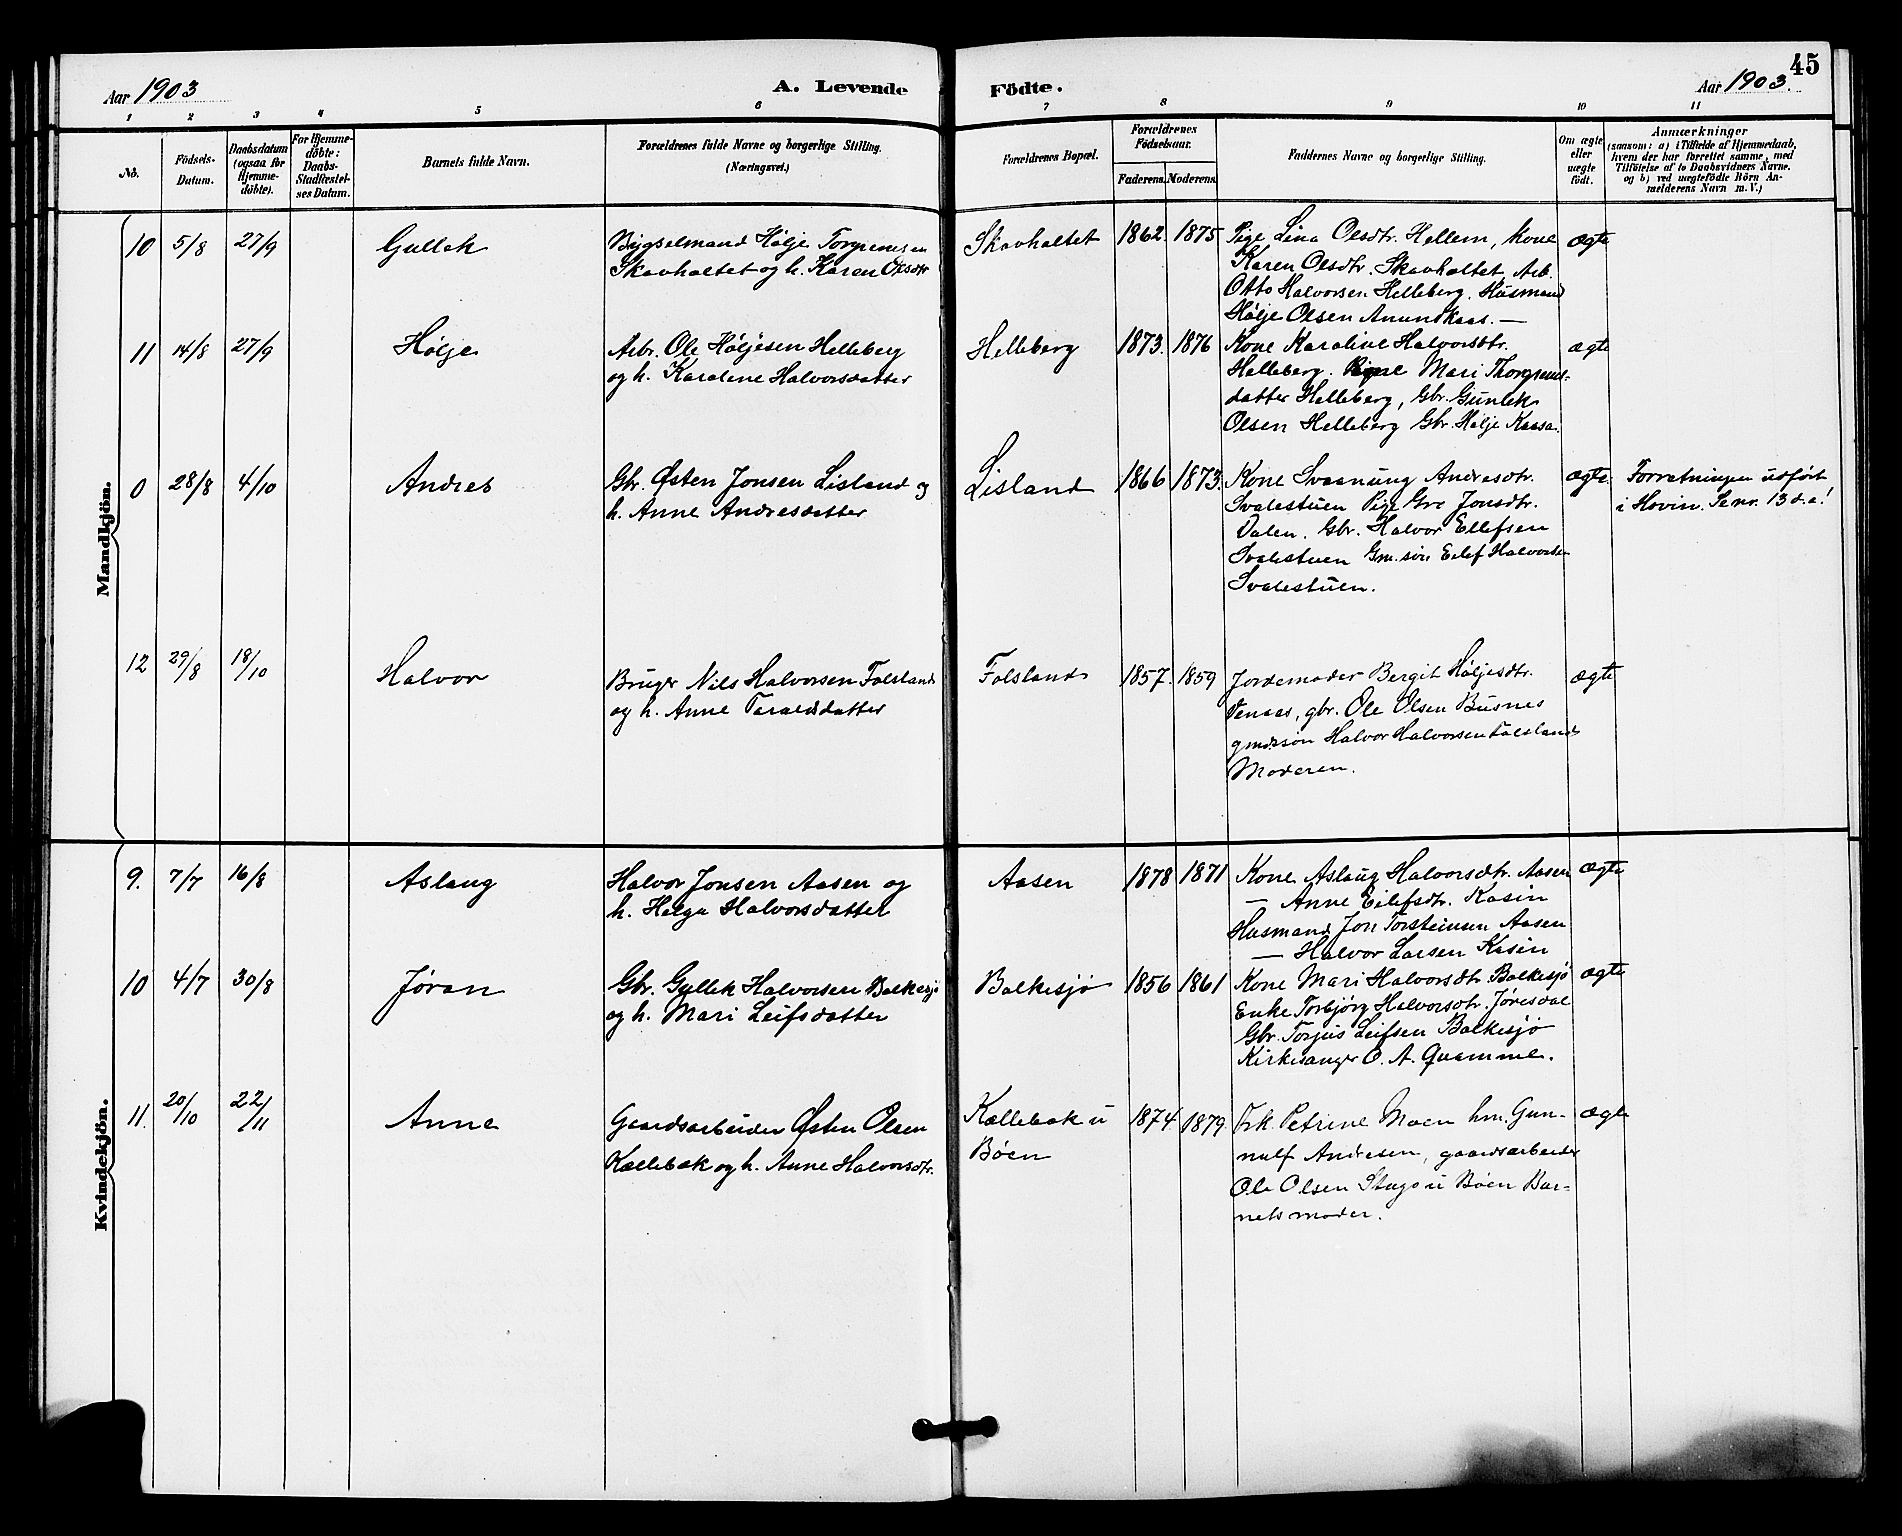 45
Aar 1903
A. Levende
Födte.
Aar 1903.
1 2 3 4 5 6 7 8 9 10 11
No.
Födsels-
Datum.
Daabsdatum
(ogsaa for
Hjemme-
döbte).
For Hjemme-
döbte:
Daabs-
Stadfæstel-
ses Datum.
Barnets fulde Navn.
Forældrenes fulde Navne og borgerlige Stilling.
(Næringsvei.)
Forældrenes Bopæl.
Forældrenes
Födselsaar.
Faderens. Moderens.
Faddernes Navne og borgerlige Stilling.
Om ægte
eller
uægte
födt.
Anmærkninger
(saasom: a) i Tilfælde af Hjemmedaab,
hvem der har forrettet samme, med
Tilföielse af to Daabsvidners Navne.
og b) ved uægtefödte Börn An-
melderens Navn m. V.)
Mandkjön.
10 5/8 27/9 Gullek
Bygselmand Hölje Torgrimsen
Skavhaltet og h. Karen Olsdtr
Skavhaltet 1862. 1875
Pige Lina Olsdtr. Hellem, Kone
Karen Olsdtr. Skavhaltet, Arb.
Otto Halvorsen Helleberg. Husmand
Hölje Olsen Anundkaas. —
ægte
11 14/8 27/9 Hølje
Arbr. Ole Høljesen Helleberg
og h. Karoline Halvorsdatter
Helleberg 1873. 1876
Kone Karoline Halvorsdtr.
Helleberg. Mari Thorgrims-
datter Helleberg, Gbr. Gunlek
Olsen Helleberg Gbr. Hølje Kaasa.
ægte
0 28/8 4/10 Andres
Gbr. Østen Jonsen Lisland og
h. Anne Andresdatter
Lisland 1866 1873.
Kone Svaanung Andresdtr.
Svalestuen Pige Gro Jonsdtr.
Dalen. Gbr. Halvor Ellefsen
Svalestuen Gm. søn Eilef Halvorsen
Svalestuen.
ægte.
Forretningen udført
i Hovin. Se nr. 13 d. a!
12 29/8 18/10 Halvor
Bruger Nils Halvorsen Folsland
og h. Anne Taraldsdatter
Folsland 1857. 1859
Jordemoder Bergit Høljesdtr.
Venaas, gbr. Ole Olsen Busnes
gmdssøn Halvor Halvorsen Folsland
Moderen.
ægte
Kvindekjön.
9. 7/7 16/8 Aslaug
Halvor Jonsen Aasen og
h. Helga Halvorsdatter
Aasen 1878 1871
Kone Aslaug Halvorsdtr. Aasen
— Anne Eilefsdtr. Kasin
Husmand Jon Torsteinsen Aasen
— Halvor Larsen Kasin
ægte
10 4/7 30/8 Jøran
Gbr. Gullek Halvorsen Bolkesjø
og h. Mari Leifsdatter
Bolkesjø 1856 1861
Kone Mari Halvorsdtr Bolkesjø
Enke Torbjørg Halvorsdtr. Jøresdal
Gbr. Torjus Leifsen Bolkesjø
Kirkesanger O. A. Quamme.
ægte
11. 20/10 22/11 Anne
Gaardsarbeider Østen Olsen
Kællebæk og h. Anne Halvorsdtr.
Kællebæk u
Bøen
1874 1879.
Frk. Petrine Moen hm. Gun-
nulf Andresen, gaardsarbeider
Ole Olsen Stugo u Bøen Bar-
nets moder.
ægte